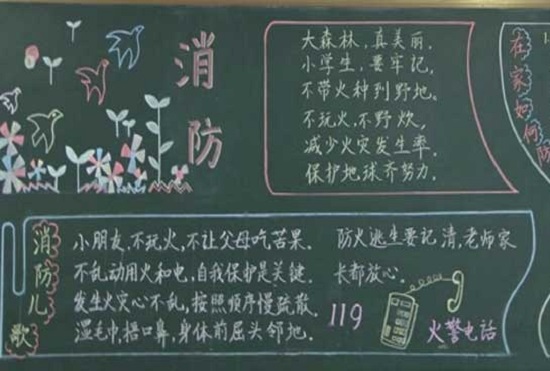 消防
大森林,真美丽.
小学生,要牢记,
不带火种到野地.
不玩火,不野炊,
减少火灾发生率.
保护地球齐努力.
在家如何防
消防儿歌
小朋友,不玩火,不让父母吃苦果.
不乱动用火和电,自我保护是关键.
发生火灾心不乱,按照顺序慢疏散.
湿毛巾捂口鼻,身体前屈头邻地.
防火逃生要记清,老师家
长都放心.
119
火警电话